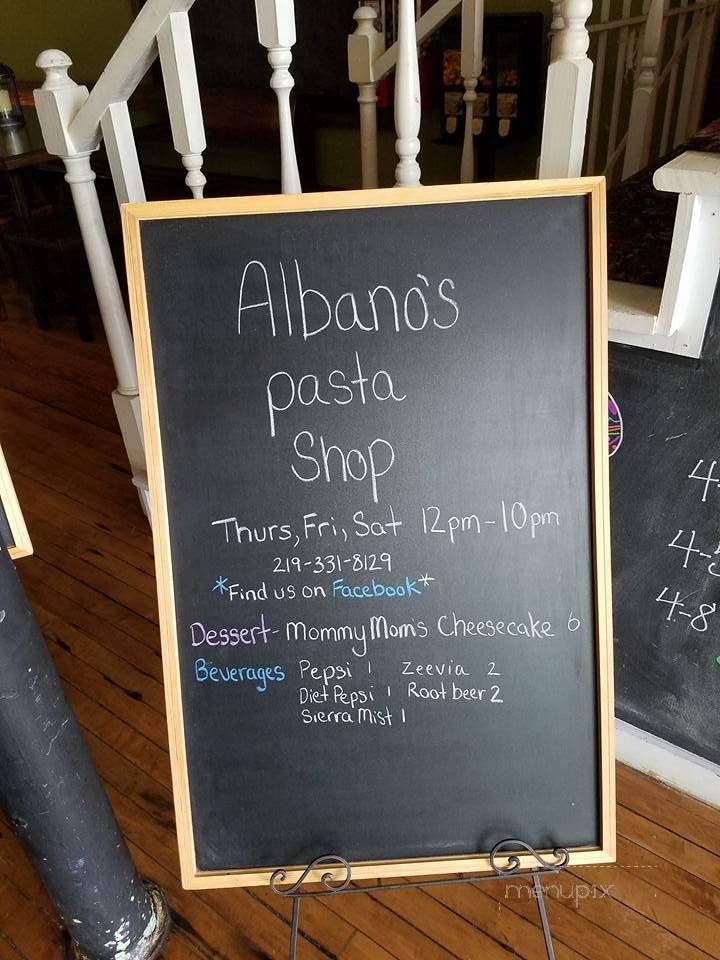 Albano's
pasta
Shop
Thurs, Fri, Sat 12pm-10pm
219-331-8129
*Find us on Facebook*
Dessert- Mommy Mom's Cheesecake 6
Beverages Pepsi 1 Zeevia 2
Diet Pepsi 1 Root beer 2
Sierra Mist 1
4-8
menupix